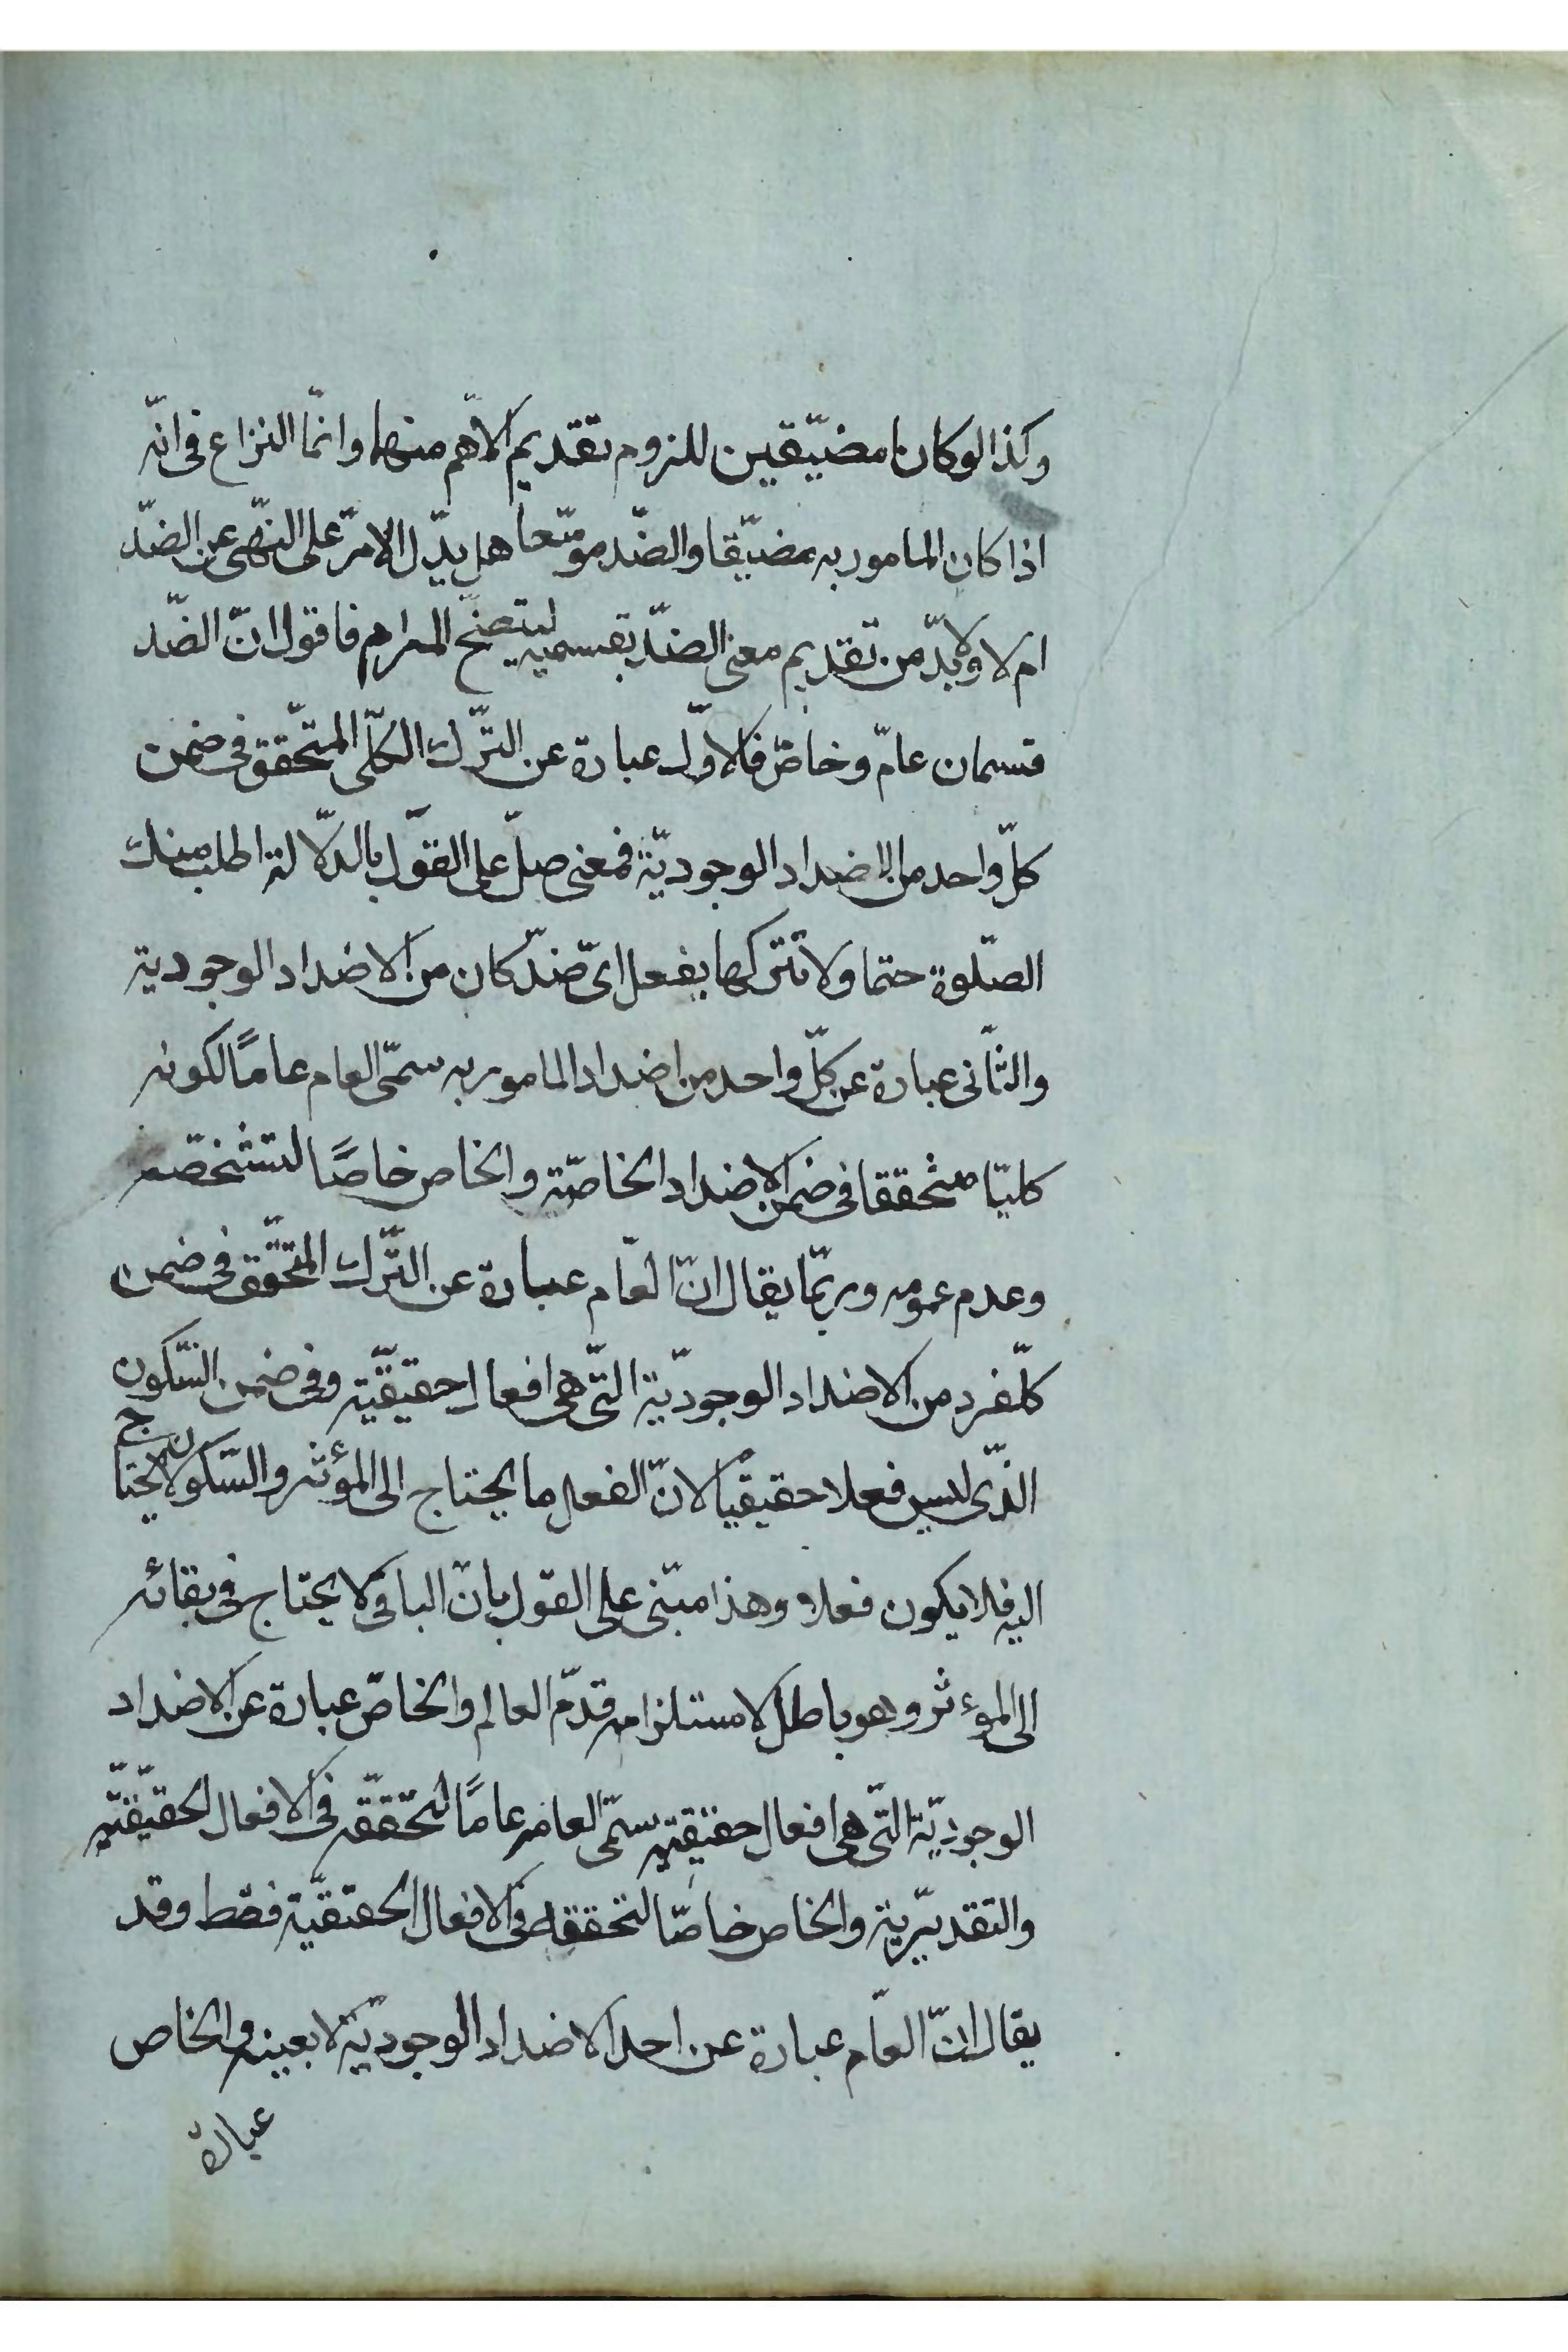 وكذا لو كانا مضيّقين للزوم تقديم الاهمّ منهما وانّما النزاع فى انّه
اذا كان المامور به مضيّقا والضّد موسّعا هل يدّل الامر على النّهى عن الضدّ
ام لا ولا بدّ من تقديم معنى الضدّ بقسميه ليتضح المرام فاقول انّ الضّد
قسمان عامّ وخاصّ فالاوّل عبارة عن التّرك الكلّى المتحّقق فى ضمن
كلّ واحد من الاضداد الوجوديّة فمعنى صلّ على القول بالدّلالة اطلب منك
الصّلوة حتما ولا تتركها بفعل اىّ ضدّ كان من الاضداد الوجودية
والثّانى عبارة عن كلّ واحد من اضداد المامور به سمّى العام عامًا لكونه
كليّا متحققا فى ضمن الاضداد الخاصّة والخاص خاصًا لتشخصّه
وعدم عمومه وربّما يقال انّ العّام عبارة عن التّرك المتحّقق فى ضمن
كلّ فرد من الاضداد الوجوديّة التّى هى افعال حقيقيّة وفى ضمن السّكون
الذّى ليس فعلا حقيقيًا لانّ الفعل ما يحتاج الى المؤثر والسّكون لا يحتاج
اليه فلا يكون فعلا وهذا مبنى على القول بانّ الباقى لا يحتاج فى بقائه
الى المؤثر وهو باطل لاستلزامه قدم العالم والخاصّ عبارة عن الاضداد
الوجوديّة التّى هى افعال حقيقيّة سمّى العام عامًا لتحّققه فى الافعال الحقيقيّة
والتقديريّة والخاص خاصّا لتحققه فى الافعال الحقيقيّة فقط وقد
يقال انّ العّام عبارة عن احد الاضداد الوجوديّة لا بعينه والخاص
عبارة